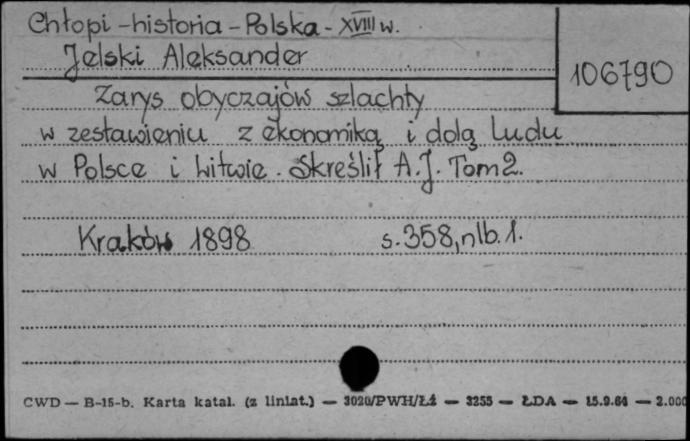 Chłopi - historia - Polska - XVIII w.
Jelski Aleksander
106790
Zarys obyczajów szlachty
w zestawieniu z ekonomiką i dolą ludu
w Polsce i Litwie. Skreślił A.J. Tom 2.
Kraków 1898 s. 358, nlb. 1.
CWD — B-15-b. Karta katal. (z liniat.) — 3020/PWH/Łź — 3255 — ŁDA — 15.9.64 — 2.000